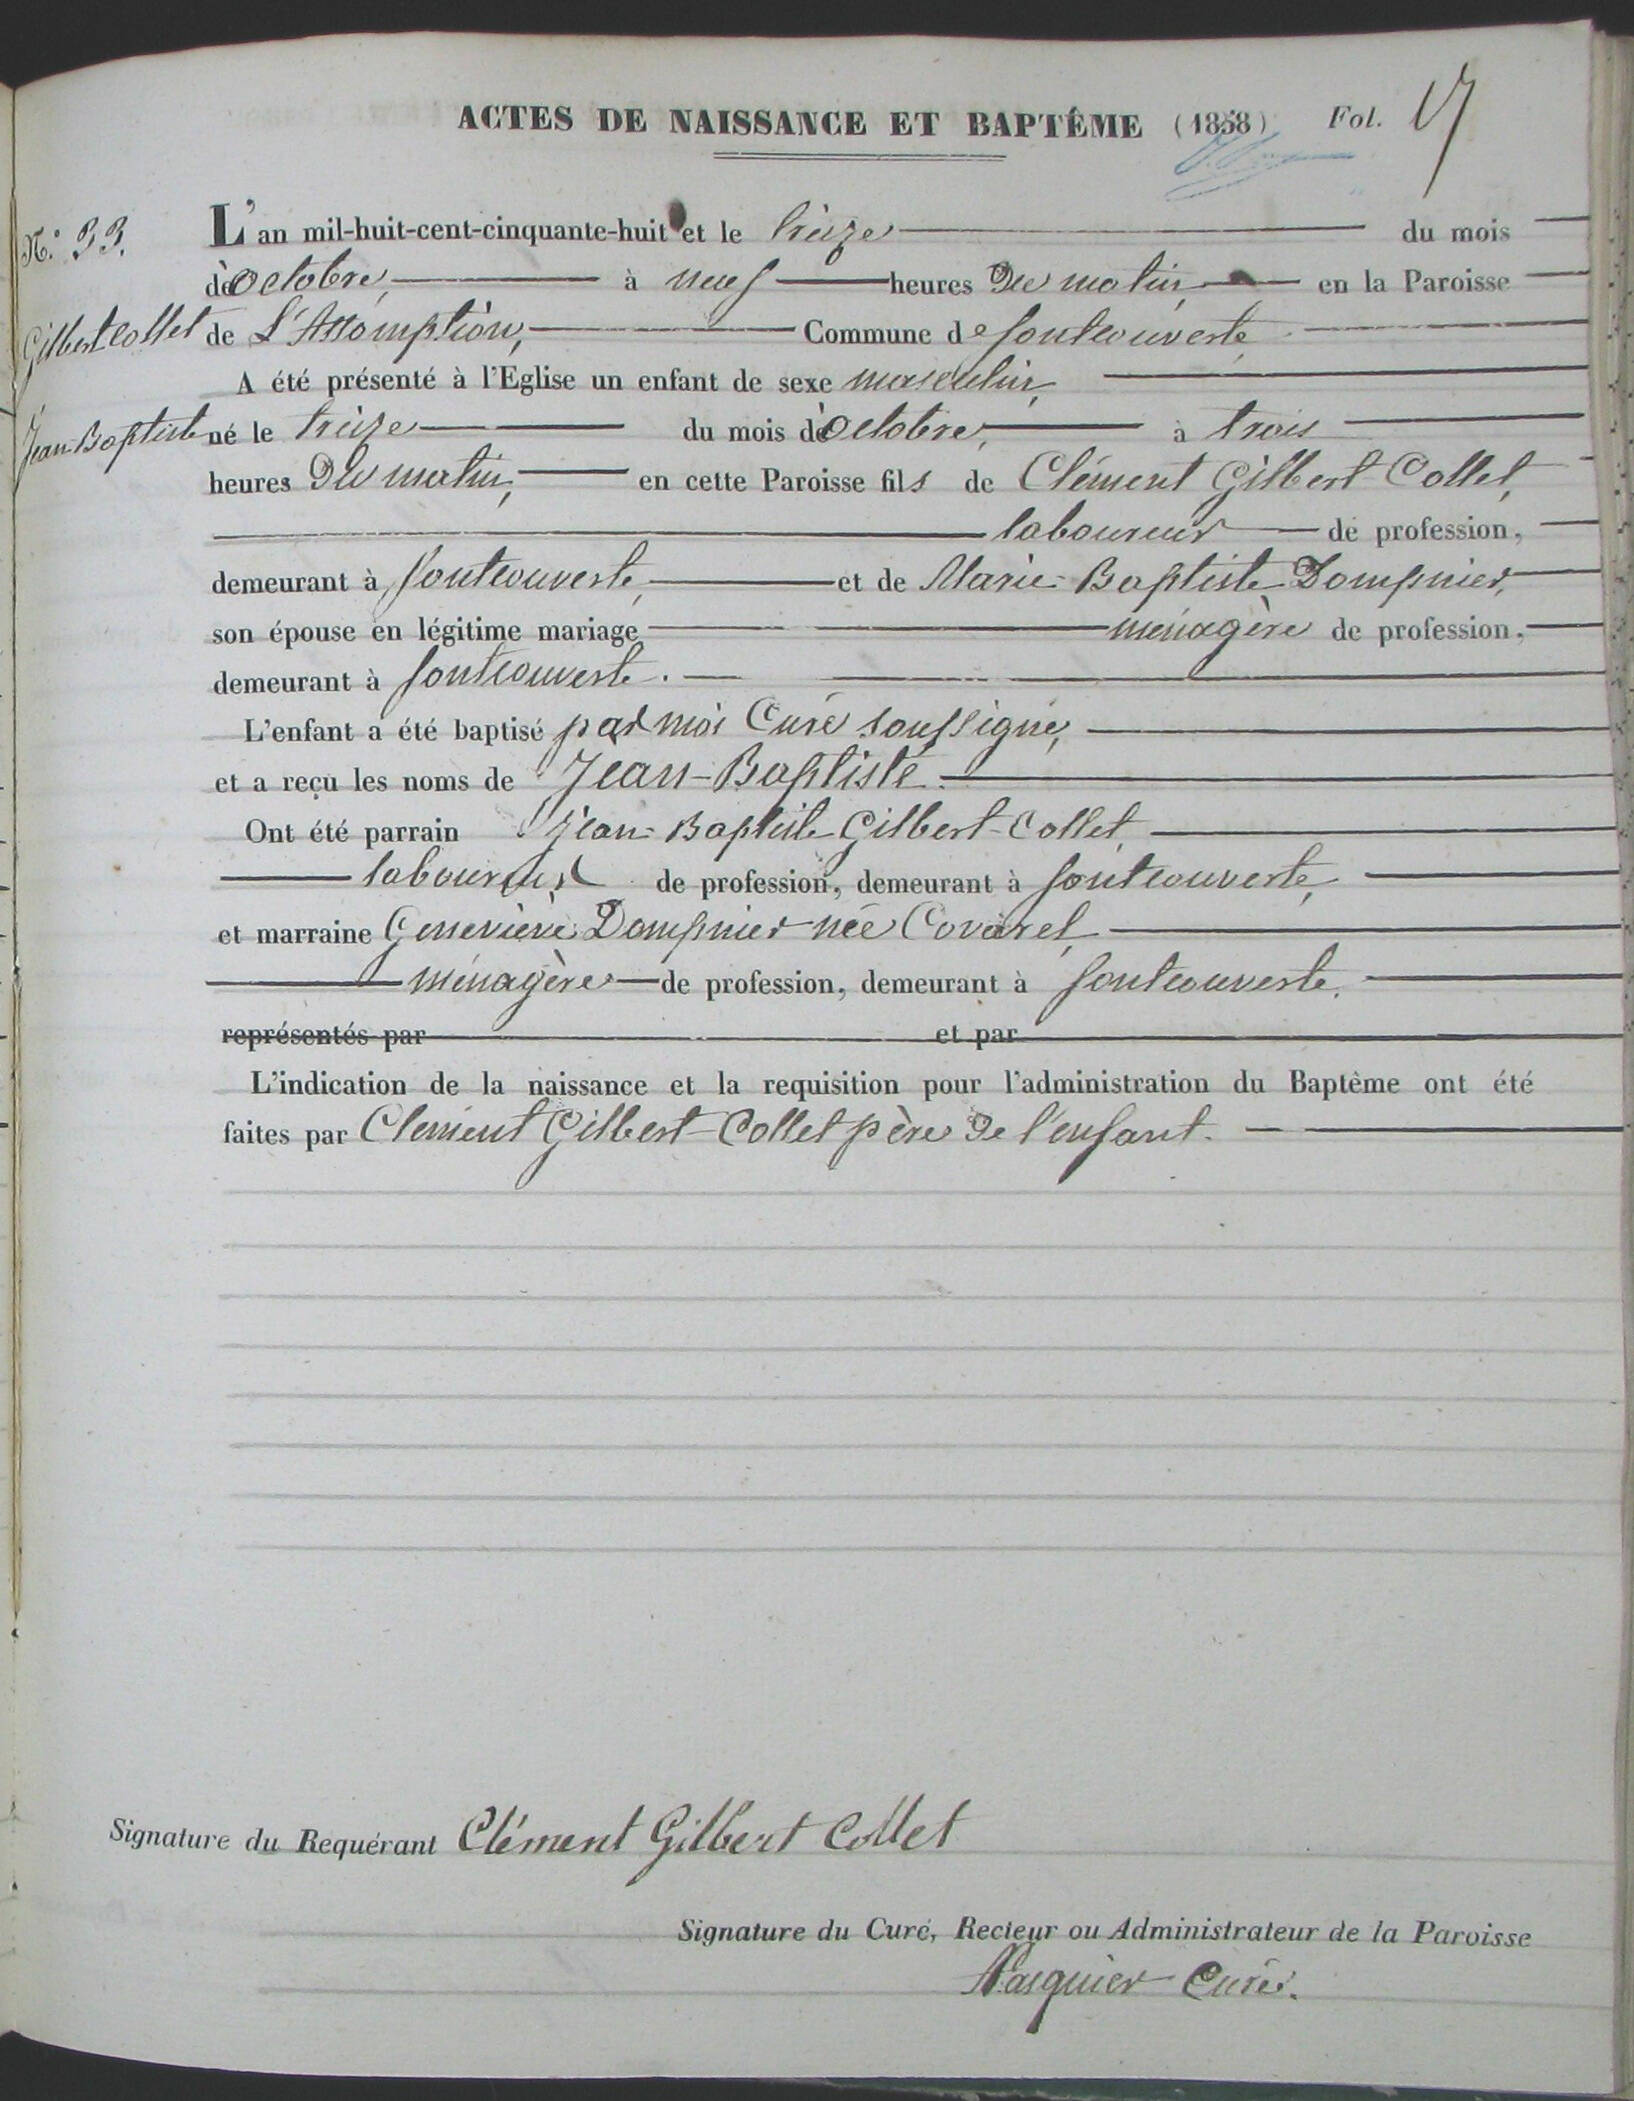 ACTES DE NAISSANCE ET BAPTÊME (1858) Fol. 17
N.° 33.
L'an mil-huit-cent-cinquante-huit et le treize du mois
d'octobre, à neuf heures du matin, en la Paroisse
Gilbert Collet
de L'Assomption, Commune de fontcouverte
A été présenté à l'Eglise un enfant de sexe masculin,
Jean-Baptiste
né le treize du mois d'octobre, à trois
heures du matin, en cette Paroisse fils de Clément Gilbert-Collet,
laboureur de profession,
demeurant à fontcouverte, et de Marie-Baptiste Dompnier,
son épouse en légitime mariage ménagère de profession,
demeurant à fontcouverte.
L'enfant a été baptisé par moi Curé soussigné,
et a reçu les noms de Jean-Baptiste.
Ont été parrain Jean-Baptiste Gilbert-Collet,
laboureur de profession, demeurant à fontcouverte,
et marraine Geneviève Dompnier née Covarel,
ménagère de profession, demeurant à fontcouverte.
représentés par et par
L'indication de la naissance et la requisition pour l'administration du Baptême ont été
faites par Clément Gilbert-Collet père de l'enfant.
Signature du Requérant Clément Gilbert Collet
Signature du Curé, Recteur ou Administrateur de la Paroisse
Curé.